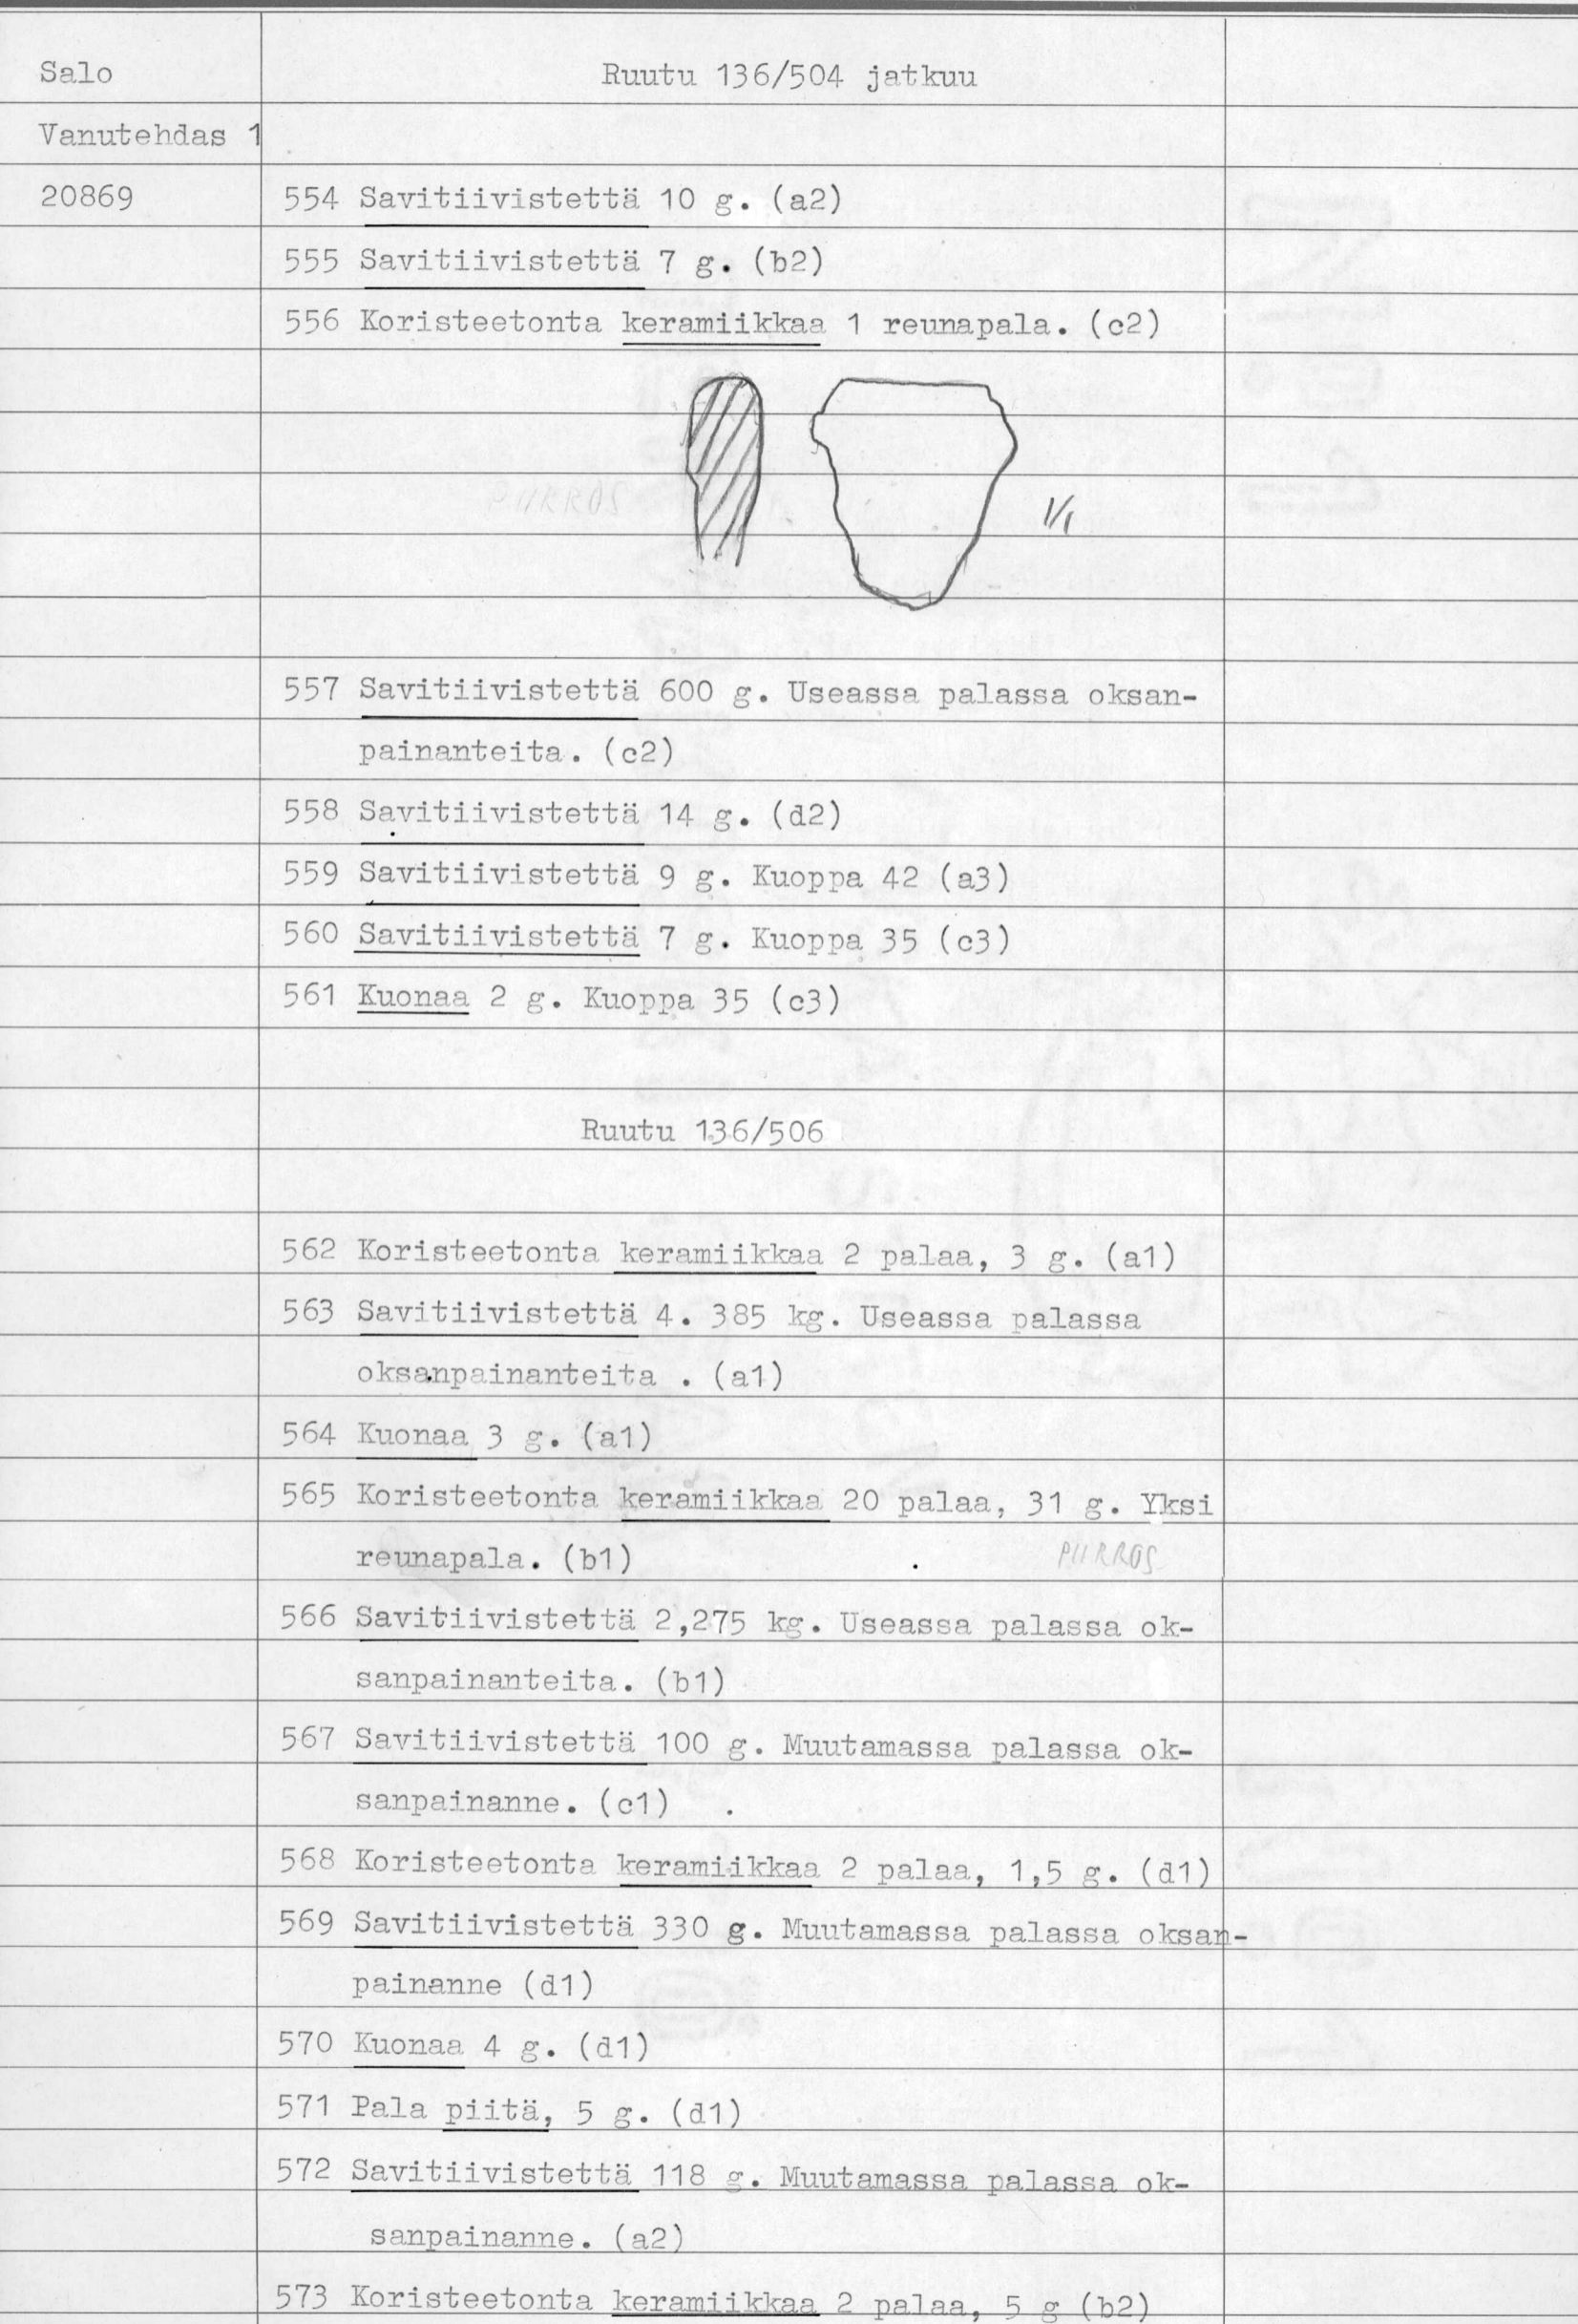 Salo
Ruutu 136/504 jatkuu
Vanutehdas 1
20869
554 Savitiivistettä 10 g. (a2)
555 Savitiivistettä 7 g. (b2)
556 Koristeetonta keramiikkaa 1 reunapala. (c2)
PURROS
1/1
557 Savitiivistettä 600 g. Useassa palassa oksan-
painanteita. (c2)
558 Savitiivistettä 14 g. (d2)
559 Savitiivistettä 9 g. Kuoppa 42 (a3)
560 Savitiivistettä 7 g. Kuoppa 35 (c3)
561 Kuonaa 2 g. Kuoppa 35 (c3)
Ruutu 136/506
562 Koristeetonta keramiikkaa 2 palaa, 3 g. (a1)
563 Savitiivistettä 4. 385 kg. Useassa palassa
oksanpainanteita . (a1)
564 Kuonaa 3 g. (a1)
565 Koristeetonta keramiikkaa 20 palaa, 31 g. Yksi
reunapala. (b1)
PURROS
566 Savitiivistettä 2,275 kg. Useassa palassa ok-
sanpainanteita. (b1)
567 Savitiivistettä 100 g. Muutamassa palassa ok-
sanpainanne. (c1)
568 Koristeetonta keramiikkaa 2 palaa, 1,5 g. (d1)
569 Savitiivistettä 330 g. Muutamassa palassa oksan-
painanne (d1)
570 Kuonaa 4 g. (d1)
571 Pala piitä, 5 g. (d1)
572 Savitiivistettä 118 g. Muutamassa palassa ok-
sanpainanne. (a2)
573 Koristeetonta keramiikkaa 2 palaa, 5 g (b2)